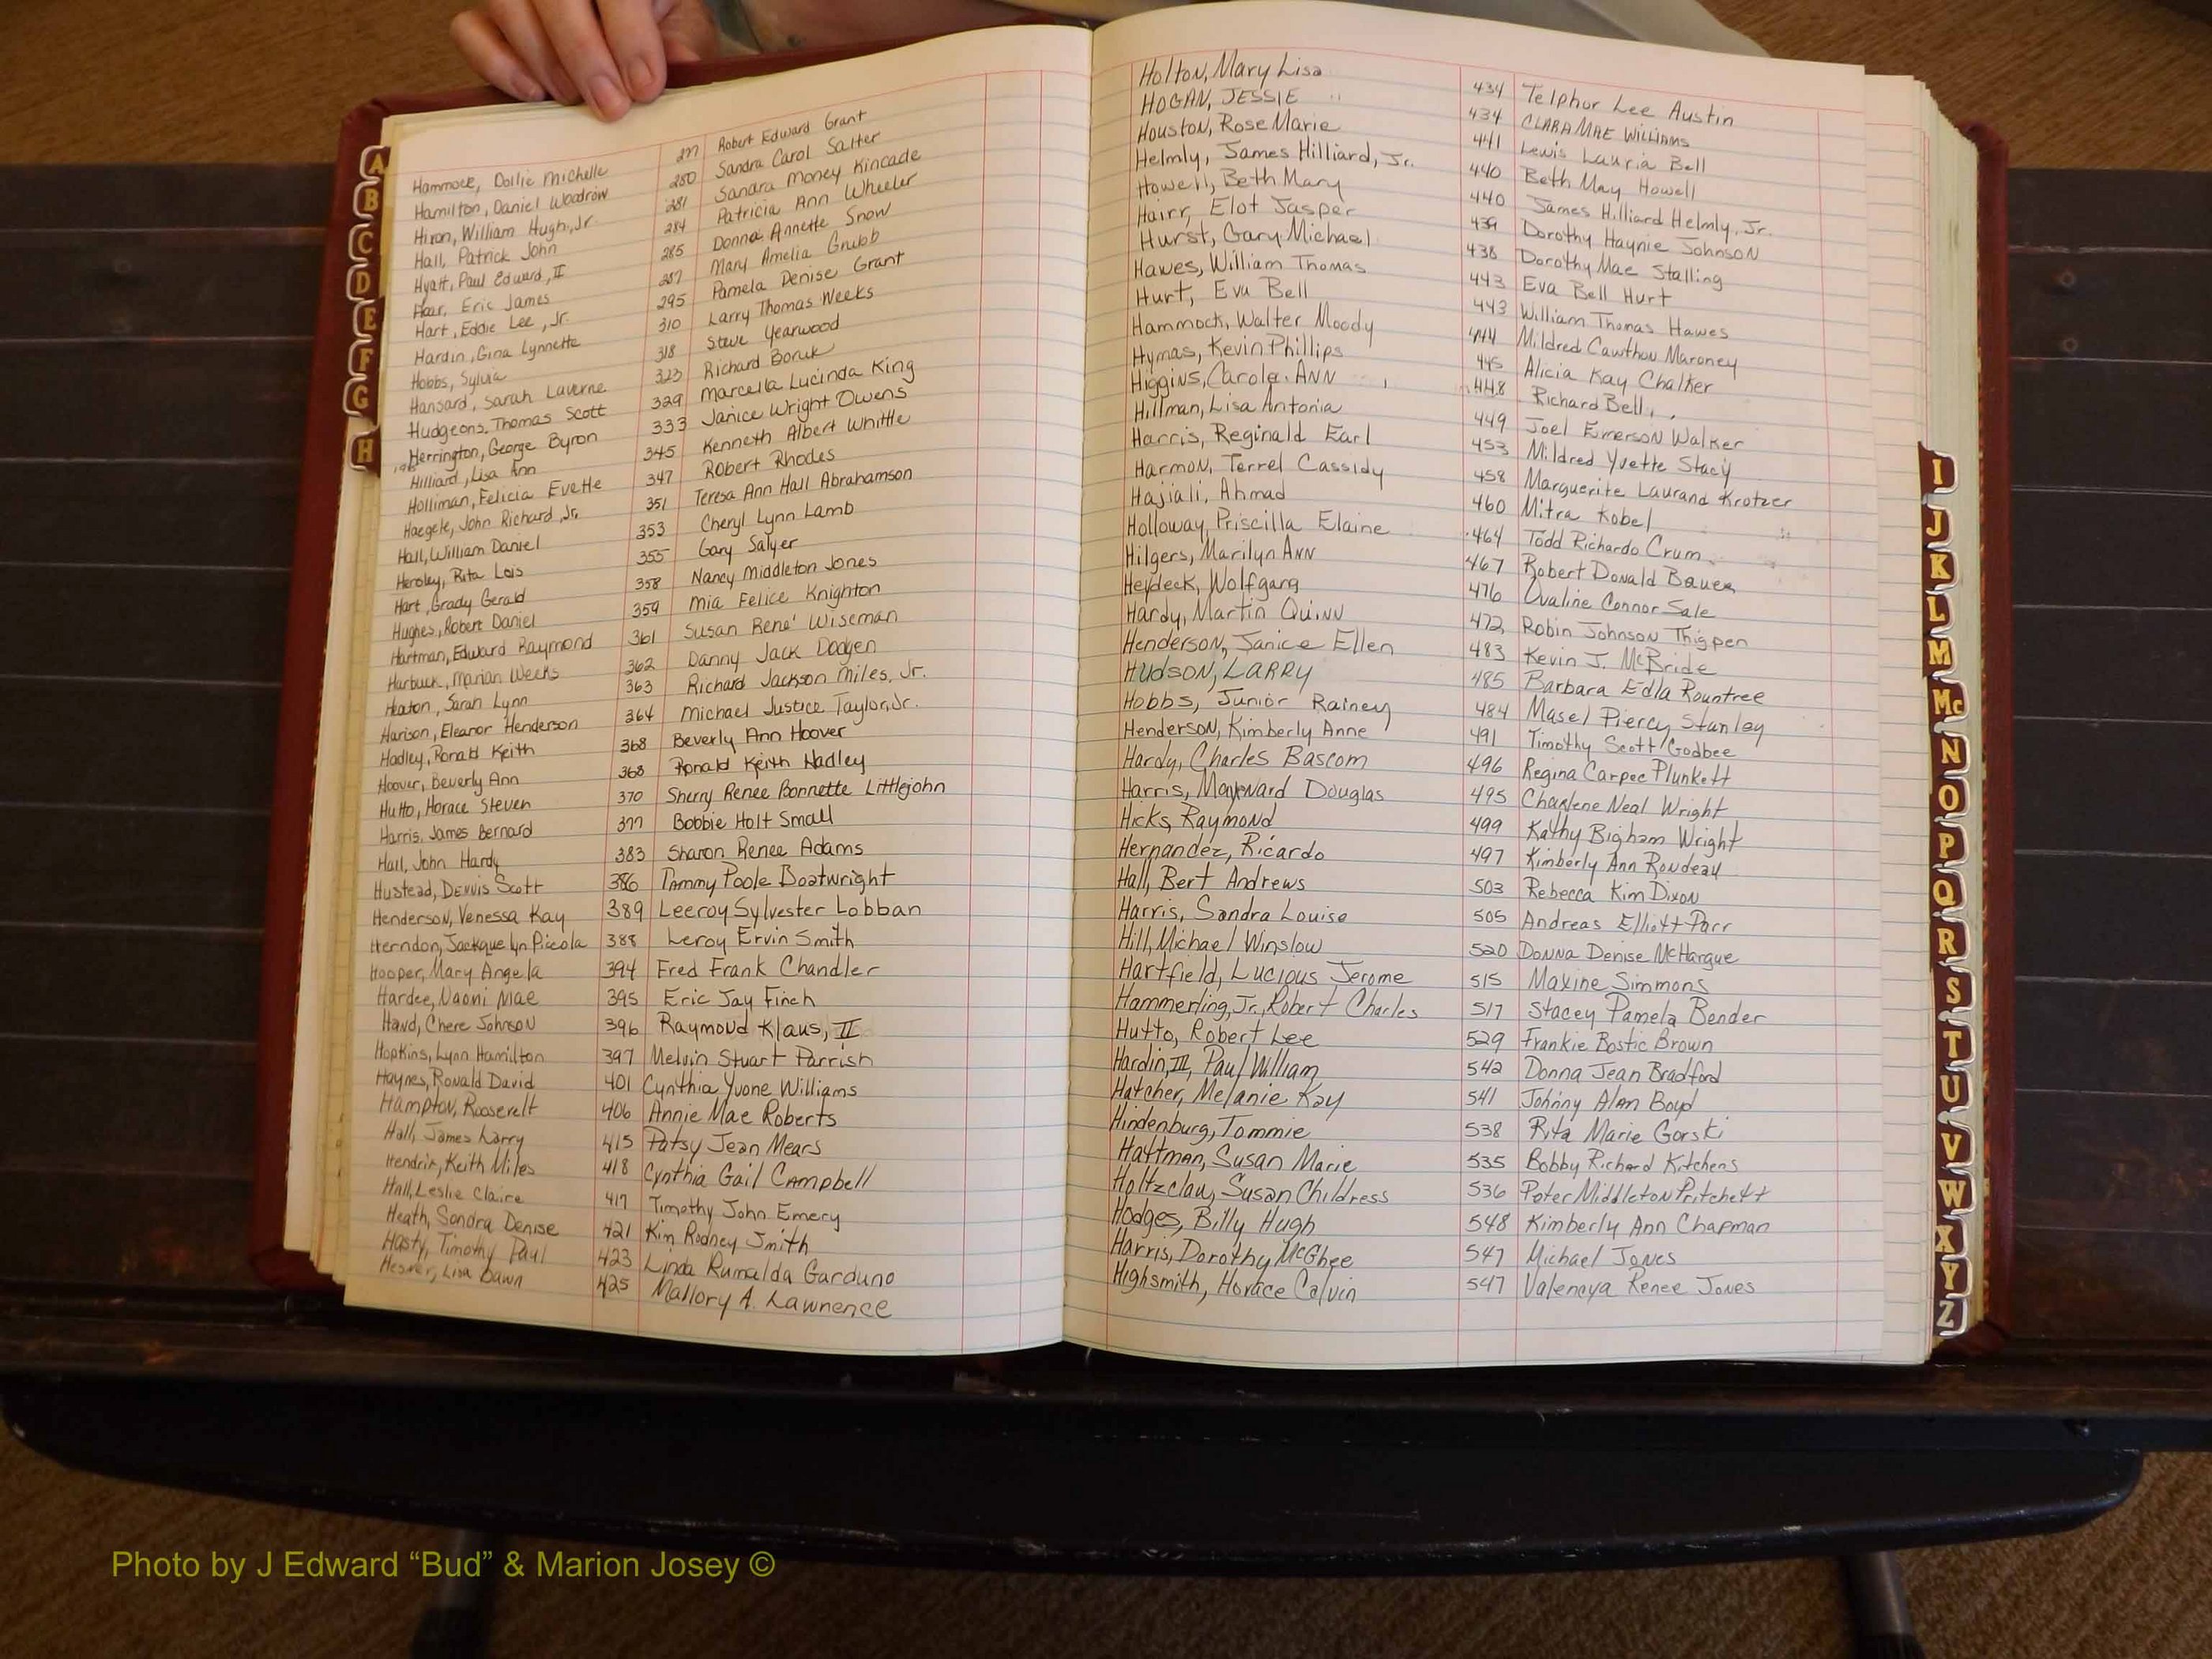 Hammock, Dollie Michelle 277 Robert Edward Grant
Hamilton, Daniel Woodrow 280 Sandra Carol Salter
Hixon, William Hugh, Jr 281 Sandra Money Kincade
Hall, Patrick John 284 Patricia Ann Wheeler
Hyatt, Paul Edward, II 285 Donna Annette Snow
Hair, Eric James 287 Mary Amelia Grubb
Hart, Eddie Lee, Jr. 295 Pamela Denise Grant
Hardin, Gina Lynnette 310 Larry Thomas Weeks
Hobbs, Sylvia 318 Steve Yearwood
Hansard, Sarah Laverne 323 Richard Boruk
Hudgeons, Thomas Scott 329 Marcella Lucinda King
Herrington, George Byron 333 Janice Wright Owens
Hilliard, Lisa Ann 345 Kenneth Albert Whittle
Holliman, Felicia Evette 347 Robert Rhodes
Haegele, John Richard, Jr. 351 Teresa Ann Hall Abrahamson
Hall, William Daniel 353 Cheryl Lynn Lamb
Rita Lois 355 Gary Salyer
Hart, Grady Gerald 358 Nancy Middleton Jones
Hughes, Robert Daniel 359 Mia Felice Knighton
Hartman, Edward Raymond 361 Susan Rene' Wiseman
Harbuck, Marian Weeks 362 Danny Jack Dodgen
Heaton, Sarah Lynn 363 Richard Jackson Miles, Jr.
Harison, Eleanor Henderson 364 Michael Justice Taylor, Jr.
Hadley, Ronald Keith 368 Beverly Ann Hoover
Hoover, Beverly Ann 368 Ronald Keith Hadley
Hutto, Horace Steven 370 Sherry Renee Bonnette Littlejohn
Harris, James Bernard 377 Bobbie Holt Small
Hall, John Hardy 383 Sharon Renee Adams
Hustead, Dennis Scott 386 Tammy Poole Boatwright
Henderson, Venessa Kay 389 Leeroy Sylvester Lobban
Herndon, Jackquelyn Piccola 388 Leroy Ervin Smith
Hooper, Mary Angela 394 Fred Frank Chandler
Hardee, Naomi Mae 395 Eric Jay Finch
Hand, Chere Johnson 396 Raymond Klaus, II
Hopkins, Lynn Hamilton 397 Melvin Stuart Parrish
Haynes, Ronald David 401 Cynthia Yvone Williams
Hampton, Roosevelt 406 Annie Mae Roberts
Hall, James Larry 415 Patsy Jean Mears
Hendrix, Keith Miles 418 Cynthia Gail Campbell
Hall, Leslie Claire 417 Timothy John Emery
Heath, Sondra Denise 421 Kim Rodney Smith
Hasty, Timothy Paul 423 Linda Rumalda Garduno
Lisa Dawn 425 Mallory A. Lawrence
Holton, Mary Lisa 434 Telphor Lee Austin
HOGAN, JESSIE 434 CLARA MAE WILLIAMS
Houston, Rose Marie 441 Lewis Lauria Bell
Helmly, James Hilliard, Jr. 440 Beth May Howell
Howell, Beth Mary 440 James Hilliard Helmly, Jr.
Hairr, Elot Jasper 439 Dorothy Haynie Johnson
Hurst, Gary Michael 438 Dorothy Mae Stalling
Hawes, William Thomas 443 Eva Bell Hurt
Hurt, Eva Bell 443 William Thomas Hawes
Hammock, Walter Moody 444 Mildred Cawthon Maroney
Hymas, Kevin Phillips 445 Alicia Kay Chalker
Higgins, Carole Ann 448 Richard Bell
Hillman, Lisa Antonia 449 Joel Emerson Walker
Harris, Reginald Earl 453 Mildred Yvette Stacy
Harmon, Terrel Cassidy 458 Marguerite Laurand Krotzer
Hajiali, Ahmad 460 Mitra Kobel
Holloway, Priscilla Elaine 464 Todd Richardo Crum
Hilgers, Marilyn Ann 467 Robert Donald Bauer
Heydeck, Wolfgang 476 Ovaline Connor Sale
Hardy, Martin Quinn 472 Robin Johnson Thigpen
Henderson, Janice Ellen 483 Kevin J. McBride
HUDSON, LARRY 485 Barbara Edla Rountree
Hobbs, Junior Rainey 484 Masel Piercy Stanley
Henderson, Kimberly Anne 491 Timothy Scott Godbee
Hardy, Charles Bascom 496 Regina Carpee Plunkett
Harris, Maynard Douglas 495 Charlene Neal Wright
Hicks, Raymond 499 Kathy Bigham Wright
Hernandez, Ricardo 497 Kimberly Ann Rondeau
Hall, Bert Andrews 503 Rebecca Kim Dixon
Harris, Sandra Louise 505 Andreas Elliott Parr
Hill, Michael Winslow 520 Donna Denise McHargue
Hartfield, Lucious Jerome 515 Maxine Simmons
Hammerling, Jr., Robert Charles 517 Stacey Pamela Bender
Hutto, Robert Lee 529 Frankie Bostic Brown
Hardin, III, Paul William 542 Donna Jean Bradford
Hatcher, Melanie Kay 541 Johnny Alan Boyd
Hindenburg, Tommie 538 Rita Marie Gorski
Haltman, Susan Marie 535 Bobby Richard Kitchens
Holtzclaw, Susan Childress 536 Peter Middleton Pritchett
Hodges, Billy Hugh 548 Kimberly Ann Chapman
Harris, Dorothy McGhee 547 Michael Jones
Highsmith, Horace Calvin 547 Valencya Renee Jones
A
B
C
D
E
F
G
H
I
J
K
L
M
Mc
N
O
P
Q
R
S
T
U
V
W
X
Y
Z
Photo by J Edward “Bud” & Marion Josey ©